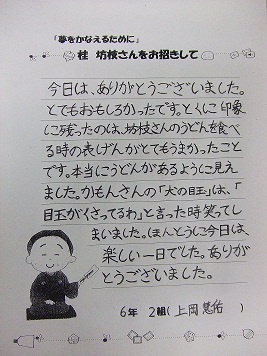 「夢をかなえるために」
桂 坊枝さんをお招きして
今日は、ありがとうございました。
とてもおもしろかったです。とくに印象
に残ったのは、坊枝さんのうどんを食べ
る時の表げんがとてもうまかったこと
です。本当にうどんがあるように見え
ました。かもんさんの「犬の目玉」は、「
目玉がくさってるわ」と言った時笑ってし
まいました。ほんとうに今日は、
楽しい一日でした。ありが
とうございました。
6年 2組(上岡 悠佑 )